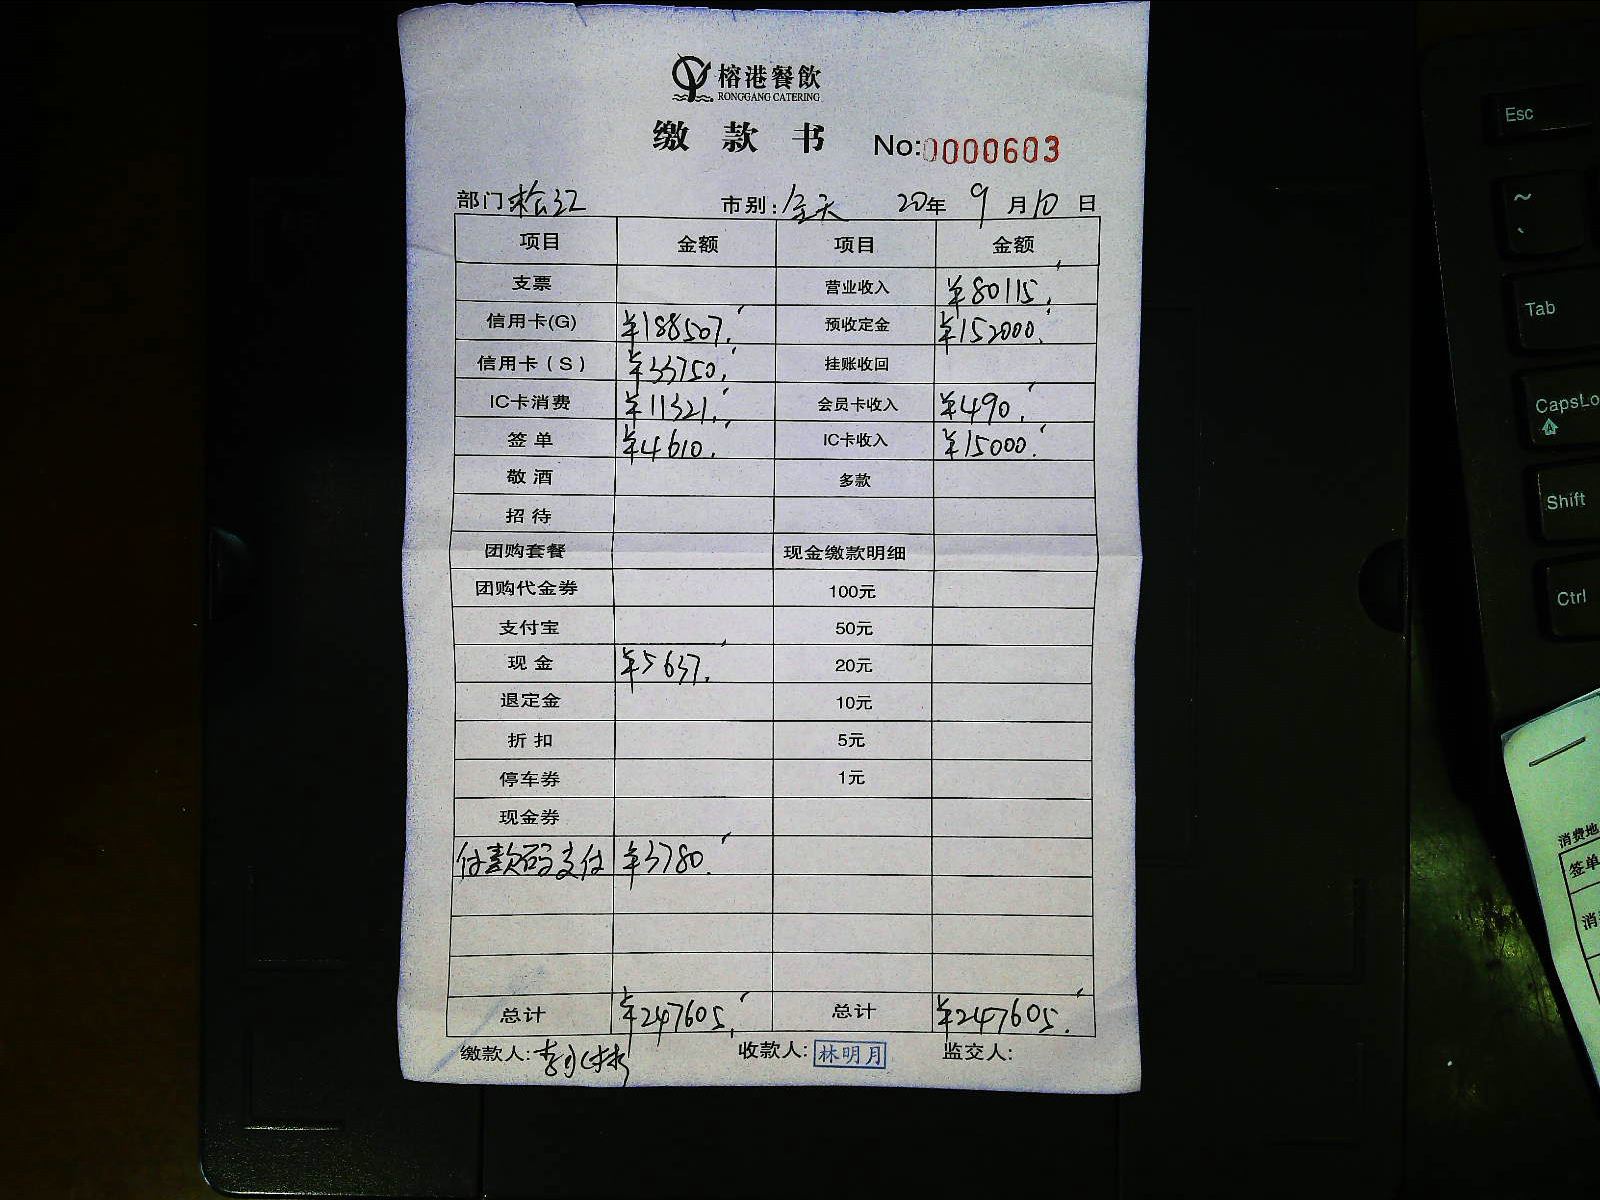 榕港餐飲
RONGGANG CATERING
缴款书 No:0000603
部门 松江 市别: 全天 20年 9月10日
项目 金额 项目 金额
支票 营业收入 ¥80115.
信用卡(G) ¥188507. 预收定金 ¥152000.
信用卡(S) ¥33750. 挂账收回
IC卡消费 ¥11321. 会员卡收入 ¥490.
签单 ¥4610. IC卡收入 ¥15000.
敬酒 多款
招待
团购套餐 现金缴款明细
团购代金券 100元
支付宝 50元
现金 ¥5637. 20元
退定金 10元
折扣 5元
停车券 1元
现金券
付款码支付 ¥3780.
总计 ¥247605. 总计 ¥247605.
缴款人: 收款人: 林明月 监交人:
Esc
~
、
Tab
CapsLo
Shift
Ctrl
消费地
签单
消